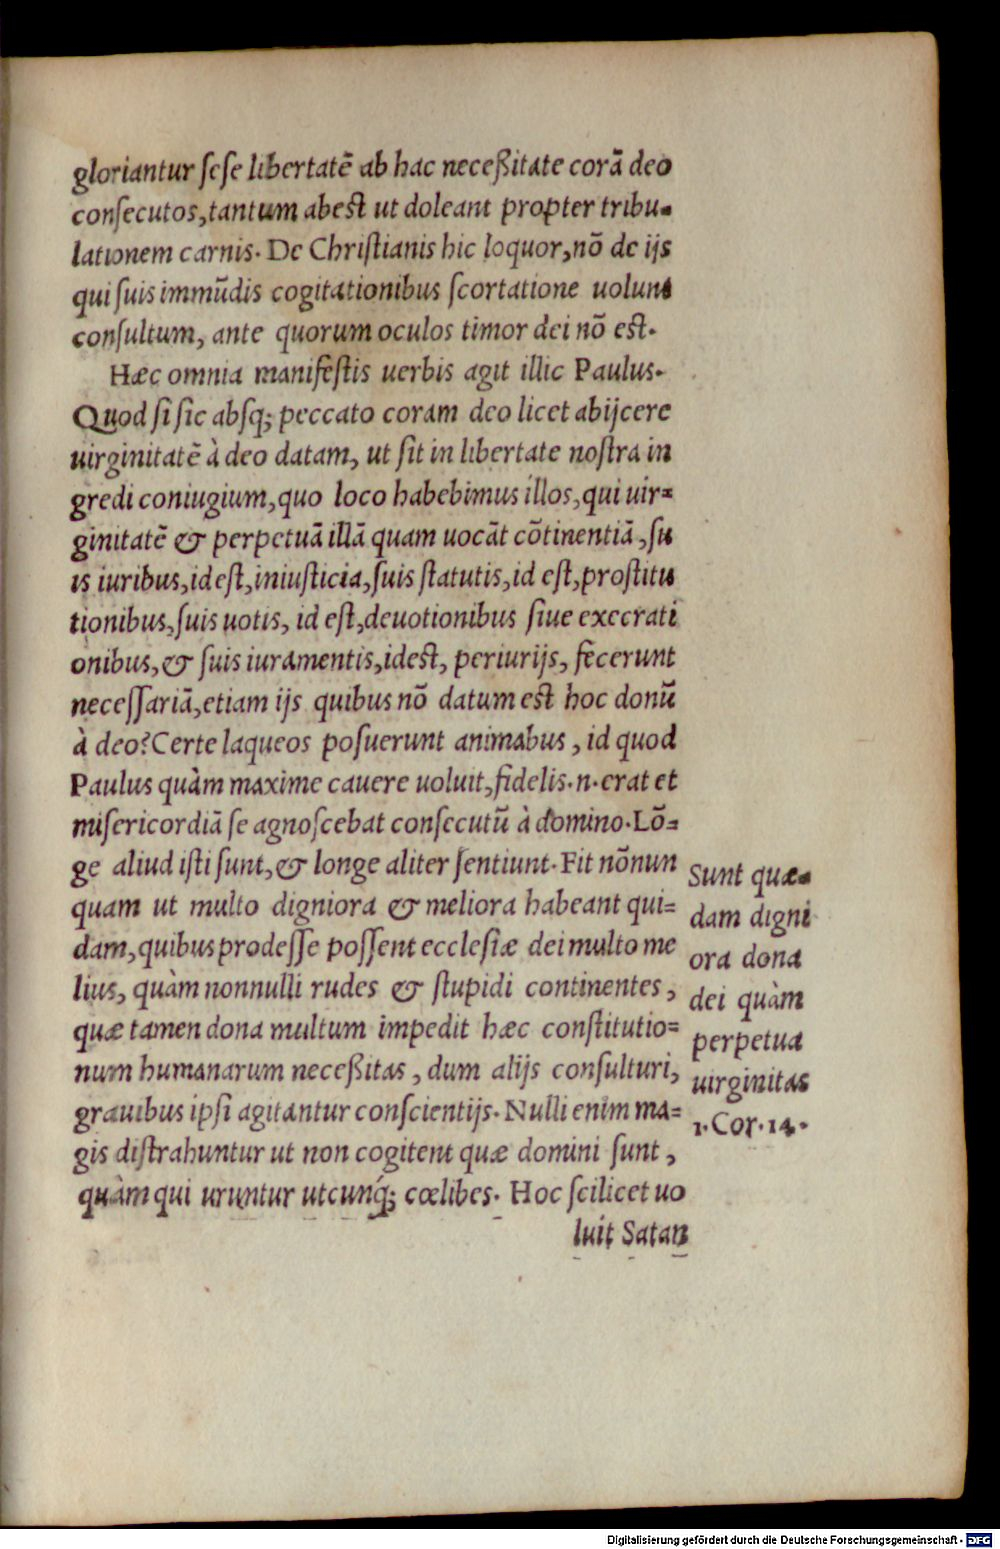 gloriantur ſeſe libertatē ab hac neceßitate corā deo
conſecutos, tantum abest ut doleant propter tribu-
lationem carnis. De Christianis hic loquor, nō de ijs
qui ſuis immūdis cogitationibus ſcortatione uolunt
conſultum, ante quorum oculos timor dei nō est.
Hæc omnia manifestis uerbis agit illic Paulus.
Quod ſi ſic absq; peccato coram deo licet abijcere
uirginitatē à deo datam, ut ſit in libertate nostra in
gredi coniugium, quo loco habebimus illos, qui uir-
ginitatē & perpetuā illā quam uocāt cōtinentiā, ſu
is iuribus, id est, iniusticia, ſuis statutis, id est, prostitu
tionibus, ſuis uotis, id est, deuotionibus ſiue execrati
onibus, & ſuis iuramentis, idest, periurijs, fecerunt
neceſſariā, etiam ijs quibus nō datum est hoc donū
à deo? Certe laqueos poſuerunt animabus, id quod
Paulus quàm maxime cauere uoluit, fidelis .n. erat et
miſericordiā ſe agnoſcebat conſecutū à domino. Lō-
ge aliud isti ſunt, & longe aliter ſentiunt. Fit nōnun
quam ut multo digniora & meliora habeant qui-
dam, quibus prodeſſe poſſent eccleſiæ dei multo me
lius, quàm nonnulli rudes & stupidi continentes,
quæ tamen dona multum impedit hæc constitutio-
num humanarum neceßitas, dum alijs conſulturi,
grauibus ipſi agitantur conſcientijs. Nulli enim ma-
gis distrahuntur ut non cogitent quæ domini ſunt,
quàm qui uruntur utcunq; cœlibes. Hoc ſcilicet uo
luit Satan
Sunt quæ-
dam digni
ora dona
dei quàm
perpetua
uirginitas
1. Cor. 14.
Digitalisierung gefördert durch die Deutsche Forschungsgemeinschaft - DFG